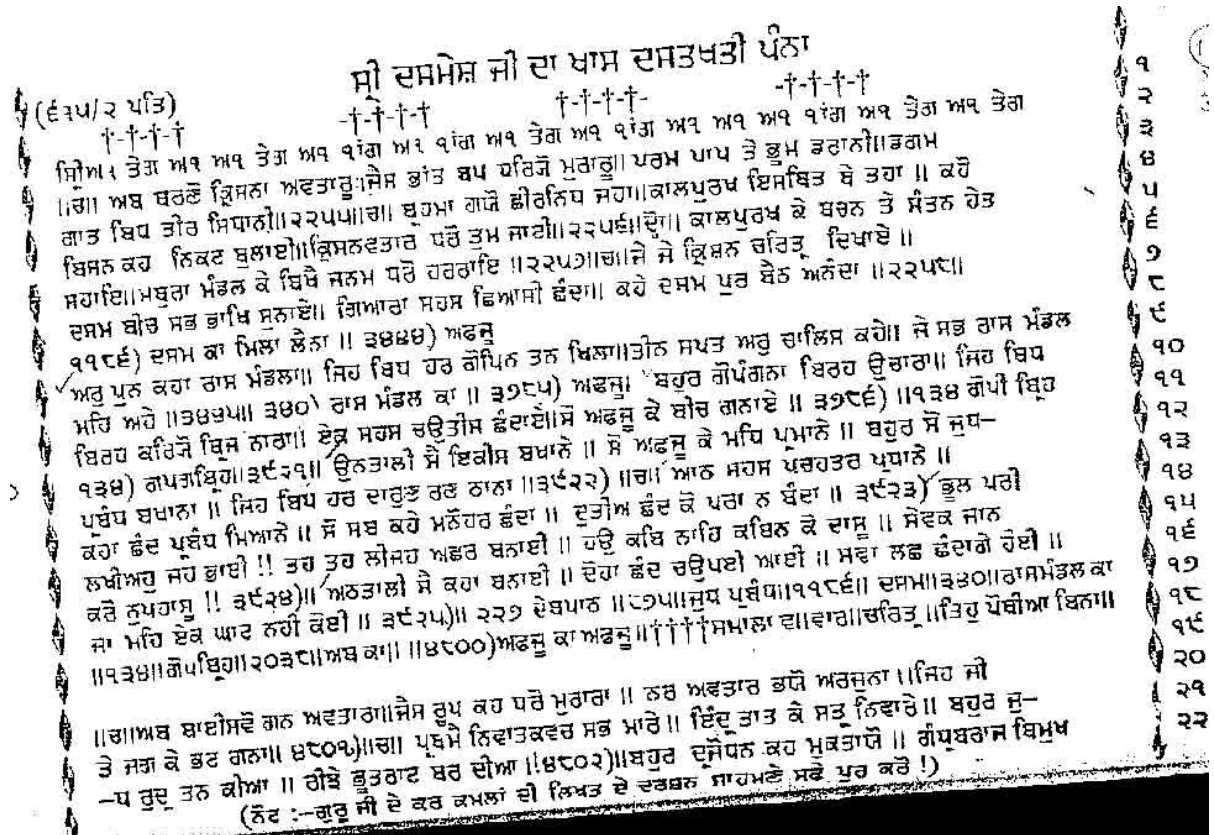 ਸ੍ਰੀ ਦਸਮੇਸ਼ ਜੀ ਦਾ ਖਾਸ ਦਸਤਖਤੀ ਪੰਨਾ
(੬੩੫/੨ ਪਤਿ)
†-†-†-† -†-†-†-† †-†-†-†- -†-†-†-†
ਤੇਗ ਅ੧ ਅ੧ ਤੇਗ ਅ੧ ੧ਾਂਗ ਅ੧ ੧ਾਂਗ ਅ੧ ਅ੧ ਅ੧ ੧ਾਂਗ ਅ੧ ਤੇਗ ਅ੧ ਤੇਗ ੧
॥ਚ॥ ਅਬ ਬਰਣੋ ਕ੍ਰਿਸਨਾ ਅਵਤਾਰੂ॥ਜੈਸ ਭਾਂਤ ਬਪ ਧਰਿਯੋ ਮੁਰਾਰੂ॥ ਪਰਮ ਪਾਪ ਤੇ ਭੂਮ ਡਰਾਨੀ॥ਡਗਮ ੨
ਗਾਤ ਬਿਧ ਤੀਰ ਸਿਧਾਨੀ॥੨੨੫੫॥ਚ॥ ਬ੍ਰਹਮਾ ਗਯੋ ਛੀਰਨਿਧ ਜਹਾ॥ਕਾਲਪੁਰਖ ਇਸਥਿਤ ਥੇ ਤਹਾ ॥ ਕਹੋ ੩
ਬਿਸਨ ਕਹ ਨਿਕਟ ਬੁਲਾਈ॥ਕ੍ਰਿਸਨਵਤਾਰ ਧਰੋ ਤੁਮ ਜਾਈ॥੨੨੫੬॥ਦੋ॥ ਕਾਲਪੁਰਖ ਕੇ ਬਚਨ ਤੇ ਸੰਤਨ ਹੇਤ ੪
ਸਹਾਇ॥ਮਥੁਰਾ ਮੰਡਲ ਕੇ ਬਿਖੈ ਜਨਮ ਧਰੋ ਹਰਰਾਇ ॥੨੨੫੭॥ਚ॥ਜੇ ਜੇ ਕ੍ਰਿਸ਼ਨ ਚਰਿਤ੍ਰ ਦਿਖਾਏ ॥ ੫
ਦਸਮ ਬੀਚ ਸਭ ਭਾਖਿ ਸੁਨਾਏ॥ ਗਿਆਰਾ ਸਹਸ ਛਿਆਸੀ ਛੰਦਾ॥ ਕਹੇ ਦਸਮ ਪੁਰ ਬੈਠ ਅਨੰਦਾ ॥੨੨੫੮॥ ੬
੧੧੮੬) ਦਸਮ ਕਾ ਮਿਲਾ ਲੈਨਾ ॥ ੩੪੪੪) ਅਫਜੂ ੭
ਅਰੁ ਪੁਨ ਕਹਾ ਰਾਸ ਮੰਡਲਾ॥ ਜਿਹ ਬਿਧ ਹਰ ਗੋਪਿਨ ਤਨ ਖਿਲਾ॥ਤੀਨ ਸਪਤ ਅਰੁ ਚਾਲਿਸ ਕਹੇ॥ ਜੇ ਸਭ ਰਾਸ ਮੰਡਲ ੮
ਮਹਿ ਅਹੇ ॥੩੪੪੫॥ ੩੪੦) ਰਾਸ ਮੰਡਲ ਕਾ ॥ ੩੭੮੫) ਅਫਜੂ। ਬਹੁਰ ਗੋਪੰਗਨਾ ਬਿਰਹ ਉਚਾਰਾ॥ ਜਿਹ ਬਿਧ ੯
ਬਿਰਧ ਕਰਿਯੋ ਬ੍ਰਿਜ ਨਾਰਾ॥ ਏਕੁ ਸਹਸ ਚਉਤੀਸ ਛੰਦਾਏ॥ਸੋ ਅਫਜੂ ਕੇ ਬੀਚ ਗਨਾਏ ॥ ੩੭੮੬) ॥੧੩੪ ਗੋਪੀ ਬ੍ਰਿਹ ੧੦
੧੩੪) ਗਪਗਬ੍ਰਿਹ॥੩੯੨੧॥ ਉਨਤਾਲੀ ਸੈ ਇਕੀਸ ਬਖਾਨੇ ॥ ਸੋ ਅਫਜੂ ਕੇ ਮਧਿ ਪ੍ਰਮਾਨੇ ॥ ਬਹੁਰ ਸੋ ਜੁਧ- ੧੧
ਪ੍ਰਬੰਧ ਬਖਾਨਾ ॥ ਜਿਹ ਬਿਧ ਹਰ ਦਾਰੁਣ ਰਣ ਠਾਨਾ ॥੩੯੨੨) ॥ਚ॥ ਆਨ ਸਹਸ ਪਚਹਤਰ ਪ੍ਰਧਾਨੇ ॥ ੧੨
ਕਹਾ ਛੰਦ ਪ੍ਰਬੰਧ ਮਿਆਨੇ ॥ ਸੋ ਸਬ ਕਹੇ ਮਨੋਹਰ ਛੰਦਾ ॥ ਦੁਤੀਅ ਛੰਦ ਕੋ ਪਰਾ ਨ ਬੰਦਾ ॥ ੩੯੨੩) ਭੂਲ ਪਰੀ ੧੩
ਲਖੀਅਹੁ ਜਹ ਭਾਈ !! ਤਹ ਤਹ ਲੀਜਹ ਅਛਰ ਬਨਾਈ ॥ ਹਉ ਕਬਿ ਨਾਹਿ ਕਬਿਨ ਕੋ ਦਾਸੁ ॥ ਸੇਵਕ ਜਾਨ ੧੪
ਕਰੋ ਨੁਪਹਾਸੁ !! ੩੯੨੪)॥ ਅਠਤਾਲੀ ਸੈ ਕਹਾ ਬਨਾਈ ॥ ਦੋਹਾ ਛੰਦ ਚਉਪਈ ਆਈ ॥ ਸਵਾ ਲਛ ਛੰਦਾਗੇ ਹੋਈ ॥ ੧੫
ਜਾ ਮਹਿ ਏਕ ਘਾਟ ਨਹੀ ਕੋਈ ॥ ੩੯੨੫)॥ ੨੨੭ ਦੇਬਪਾਨ ॥੮੭੫॥ਜੁਧ ਪ੍ਰਬੰਧ॥੧੧੮੬॥ ਦਸਮ॥੩੪੦॥ਰਾਸਮੰਡਲ ਕਾ ੧੬
॥੧੩੪॥ਗੋਪਬ੍ਰਿਹ॥੨੦੩੮॥ਅਬ ਕਾ॥ ॥੪੮੦੦)ਅਫਜੂ ਕਾ ਅਫਜੂ॥††††ਸਮਾਲਾ ਵ॥ਵਾਰ॥ਚਰਿਤ੍ਰ ॥ਤਿਹੁ ਪੋਥੀਆ ਬਿਨਾ॥ ੧੭
੧੮
॥ਚ॥ਅਬ ਬਾਈਸਵੋ ਗਨ ਅਵਤਾਰਾ॥ਜੈਸ ਰੂਪ ਕਹ ਧਰੋ ਮੁਰਾਰਾ ॥ ਨਰ ਅਵਤਾਰ ਭਯੋ ਅਰਜੁਨਾ ॥ਜਿਹ ਜੀ ੧੯
ਤੇ ਜਗ ਕੇ ਭਟ ਗਨਾ॥ ੪੮੦੧)॥ਚ॥ ਪ੍ਰਥਮੈ ਨਿਵਾਤਕਵਚ ਸਭ ਮਾਰੇ॥ ਇੰਦ੍ਰ ਤਾਤ ਕੇ ਸਤ੍ਰੁ ਨਿਵਾਰੇ॥ ਬਹੁਰ ਜੁ- ੨੦
-ਧ ਰੁਦ੍ਰ ਤਨ ਕੀਆ ॥ ਰੀਝੇ ਭੂਤਰਾਟ ਬਰ ਦੀਆ ॥੪੮੦੨)॥ਬਹੁਰ ਦ੍ਰਜੋਧਨ ਕਹ ਮੁਕਤਾਯੋ ॥ ਗੰਧ੍ਰਬਰਾਜ ਬਿਮੁਖ ੨੧
(ਨੋਟ :-ਗੁਰੂ ਜੀ ਦੇ ਕਰ ਕਮਲਾਂ ਦੀ ਲਿਖਤ ਦੇ ਦਰਸ਼ਨ ਸਾਹਮਣੇ ਸਫੇ ਪੁਰ ਕਰੋ !) ੨੨